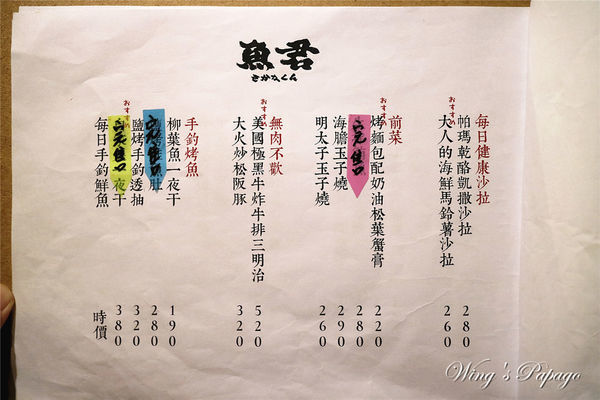 魚君
さかなくん
每日健康沙拉
帕瑪乾酪凱撒沙拉 280
おすすめ
大人的海鮮馬鈴薯沙拉 260
前菜
おすすめ
烤麵包配奶油松葉蟹膏 220
完售 280
海膽玉子燒 290
明太子玉子燒 260
無肉不歡
おすすめ
美國極黑牛炸牛排三明治 520
大火炒松阪豚 320
手釣烤魚
柳葉魚一夜干 190
完售 肚 280
鹽烤手釣透抽 320
おすすめ
完售 夜干 380
每日手釣鮮魚 時價
Wing's Papago